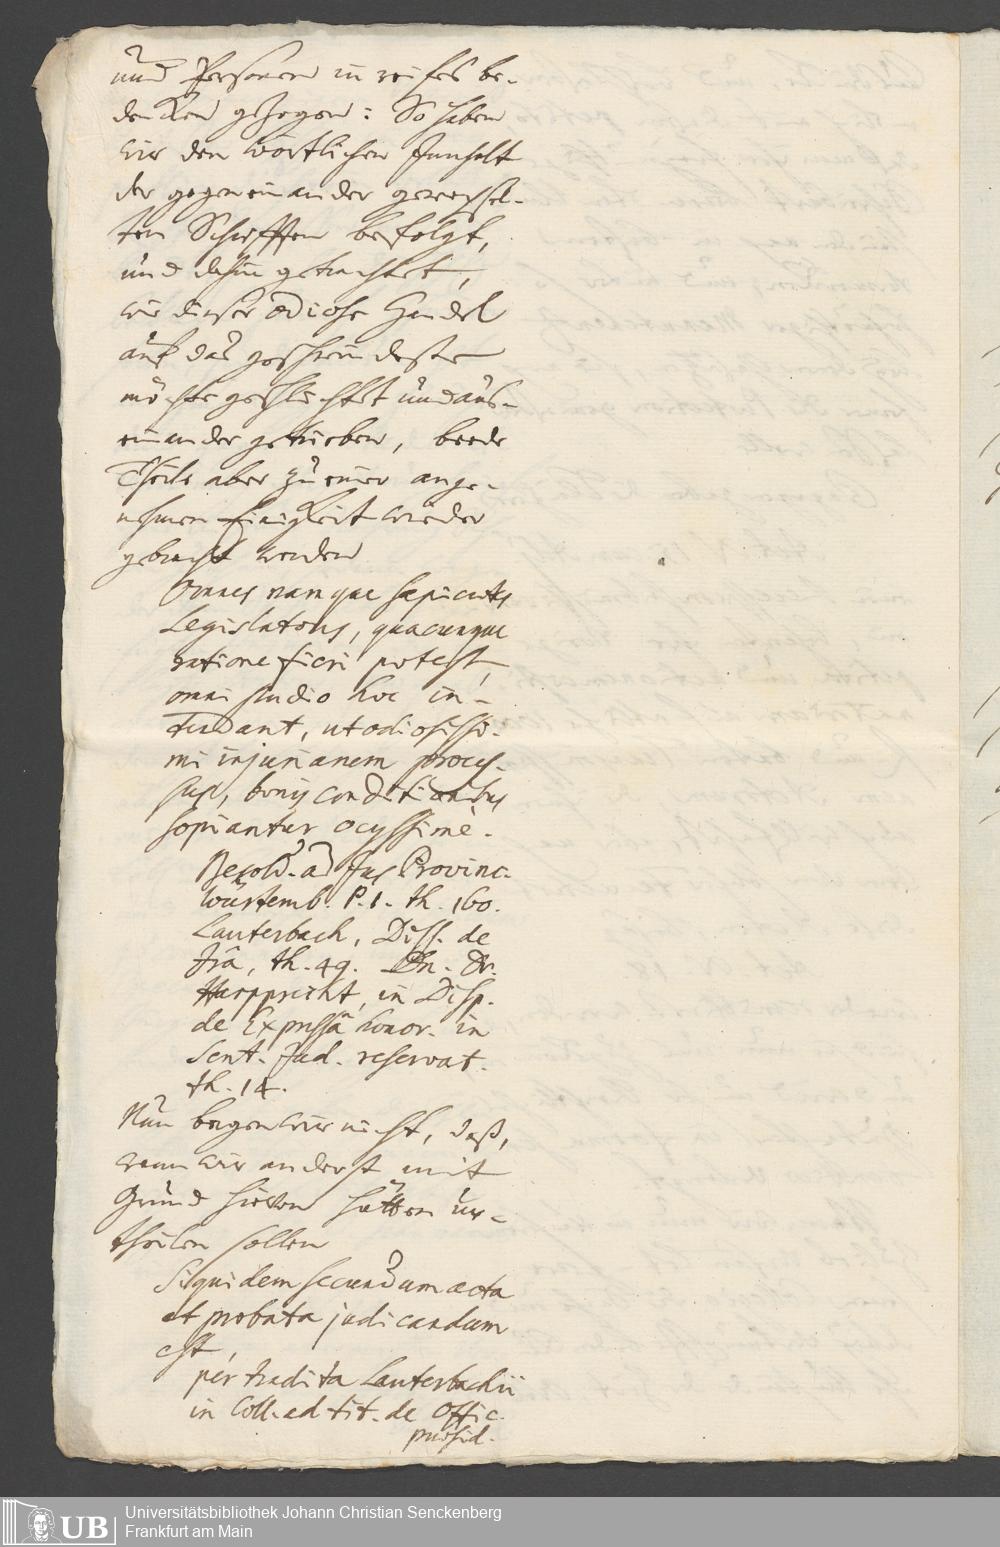 und Personen in reifes be-
dencken gezogen: So haben
wir den wörtlichen Innhalt
der gegeneinander gewechsel-
ten Schrifften befolgt,
und dahin getrachtet,
wie dieser odiose Handel
auf das geschwindeste
möchte geschlichtet und aus-
einander getrieben, beede
Theile aber zu einer ange-
nehmen Einigkeit wieder
gebracht werden
Omnes namque sapientes
Legislatores, quacunque
ratione fieri potest,
omni studio hoc in-
tendant, ut odiosissi-
mi injuriarum proces-
sus, bonis conditionibus
sopiantur ocyssimè.
Besold. ad Jus Provinc.
Würtemb. P. 1. th. 160.
Lauterbach, Diss. de
Irâ, th. 49. Dn. Dr.
Harpprecht, in Disp.
de Expressâ honor. in
Sent. Jud. reservat.
th. 14.
Nun bergen wir nicht, daß,
wann wir anderst mit
Grund hieven hätten ur-
theilen sollen
Siquidem secundum acta
et probata judicandum
est,
per tradita Lauterbachii
in Coll. ad tit. de Offic.
præsid.
Universitätsbibliothek Johann Christian Senckenberg
Frankfurt am Main
UB